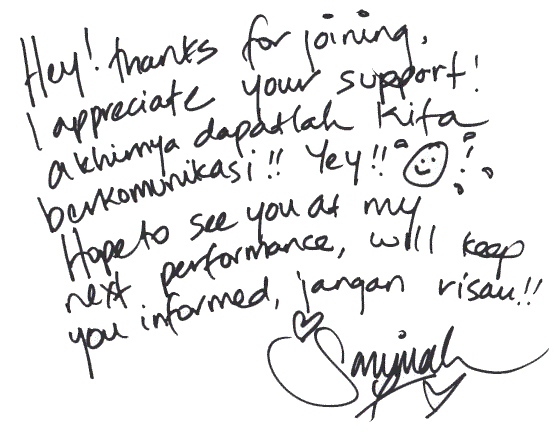 Hey! thanks for joining.
I appreciate your support!
akhirnya dapatlah kita
berkomunikasi!! Yey!!
Hope to see you at my
next performance, will keep
you informed, jangan risau!!